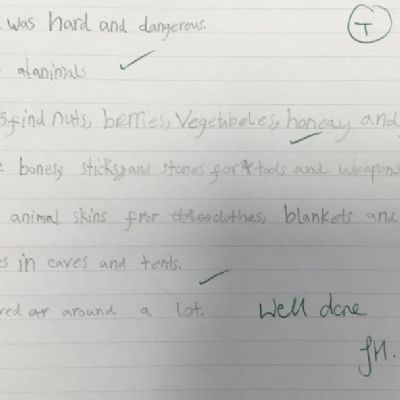 was hard and dangerous.
T
animals
find nuts, berries, Vegetabeles, honeay and
bones, sticks, and stones for tools and weapons
animal skins fror clothes, blankets and
in caves and tents.
around a lot.
Well done
JH.